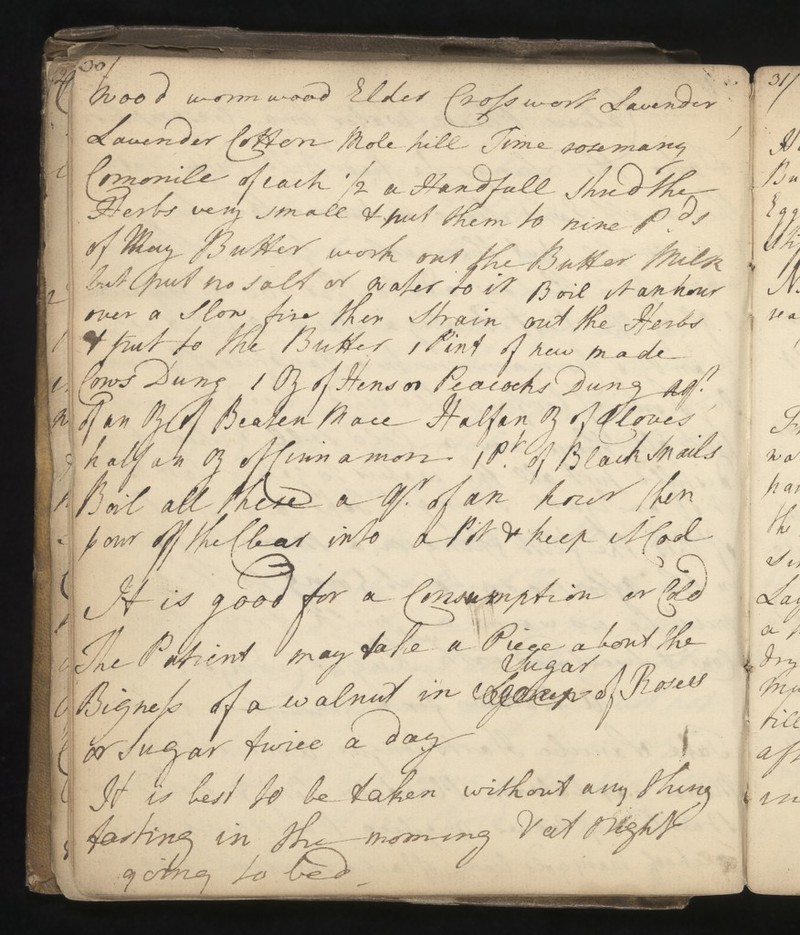 30/
Wood wormwood Elder Crosswort Lavender
Lavender Cotton Mole hill Time rosemary
Comonile of each 1/2 a Handfull shred the
Herbs very small & put them to nine P.ds
of May Butter work out the Butter Milk
but put no salt or water to it Boil it an hour
over a slow fire then strain out the Herbs
& put to the Butter 1 Pint of new made
Cows Dung 1 Oz of Hens or Peacocks Dung a qr.
of an Oz of Beaten Mace Half an Oz of Cloves
half an Oz of Cinnamon 1 Pt. of Black Snails
Boil all these a qr. of an hour then
pour off the Clear into a Pot & keep it Cod
It is good for a Consumption or Cold
The Patient may take a Piege about the
Sugar
Bigness of a walnut in of Roses
or sugar twice a day
It is best to be taken without any thing
fasting in the morning & at Night
going to bed
31/